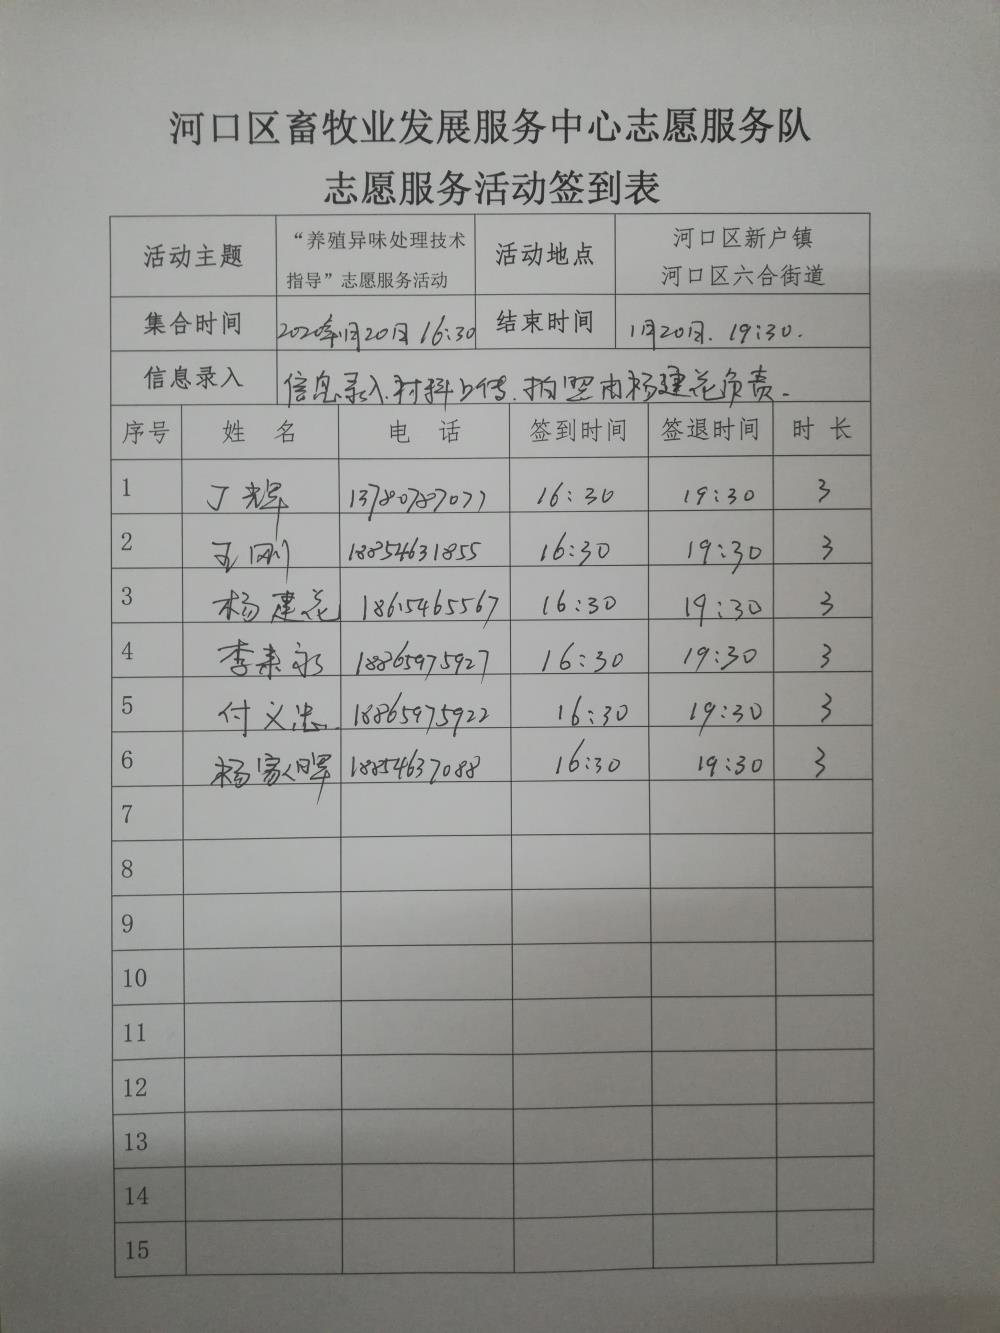 河口区畜牧业发展服务中心志愿服务队
志愿服务活动签到表
活动主题 “养殖异味处理技术指导”志愿服务活动 活动地点 河口区新户镇 河口区六合街道
集合时间 2020年1月20日 16:30 结束时间 1月20日. 19:30.
信息录入 信息录入.材料上传.拍照由杨建花负责.
序号 姓 名 电 话 签到时间 签退时间 时 长
1 丁辉 13780787077 16:30 19:30 3
2 王刚 18854631855 16:30 19:30 3
3 杨建花 18615465567 16:30 19:30 3
4 李来永 18865975927 16:30 19:30 3
5 付义忠 18865975922 16:30 19:30 3
6 杨家 18854637088 16:30 19:30 3
7
8
9
10
11
12
13
14
15